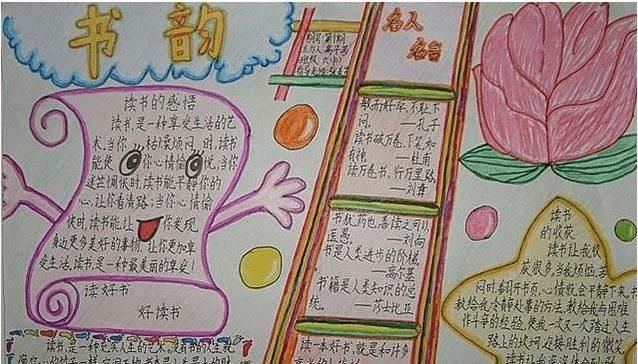 书韵
读书的感悟
读书,是一种享受生活的艺
术,当你枯燥烦闷时,读书
能使你心情愉悦,当你
迷茫惆怅时,读书能平静你的
心,让你看清路;当你心情愉
快时,读书能让你发现
身边更多美好的事物,让你更加享
受生活,读书是一种最美丽的享受!
读好书
好读书
名人
名言
敏而好学,不耻下
问。
——孔子
读书破万卷,下笔如
有神
——杜甫
读万卷书,行万里路
——刘彝
书犹药也,善读之可以
医愚。
——刘向
书是人类进步的阶梯
——高尔基
书籍是人类知识的总
统。
——莎士比亚
读一本好书,就是和许多
读书
的收获
读书让我收
获很多,当我烦恼、苦
闷时,翻开书页,心情就会平静下来,书
教给我冷静处事的方法,教给我与困难
作斗争的经验,使我一次又一次踏过人生
路上的坎坷,迎接胜利的微笑
读书,是一种充实人生的艺术,没有书的人生就